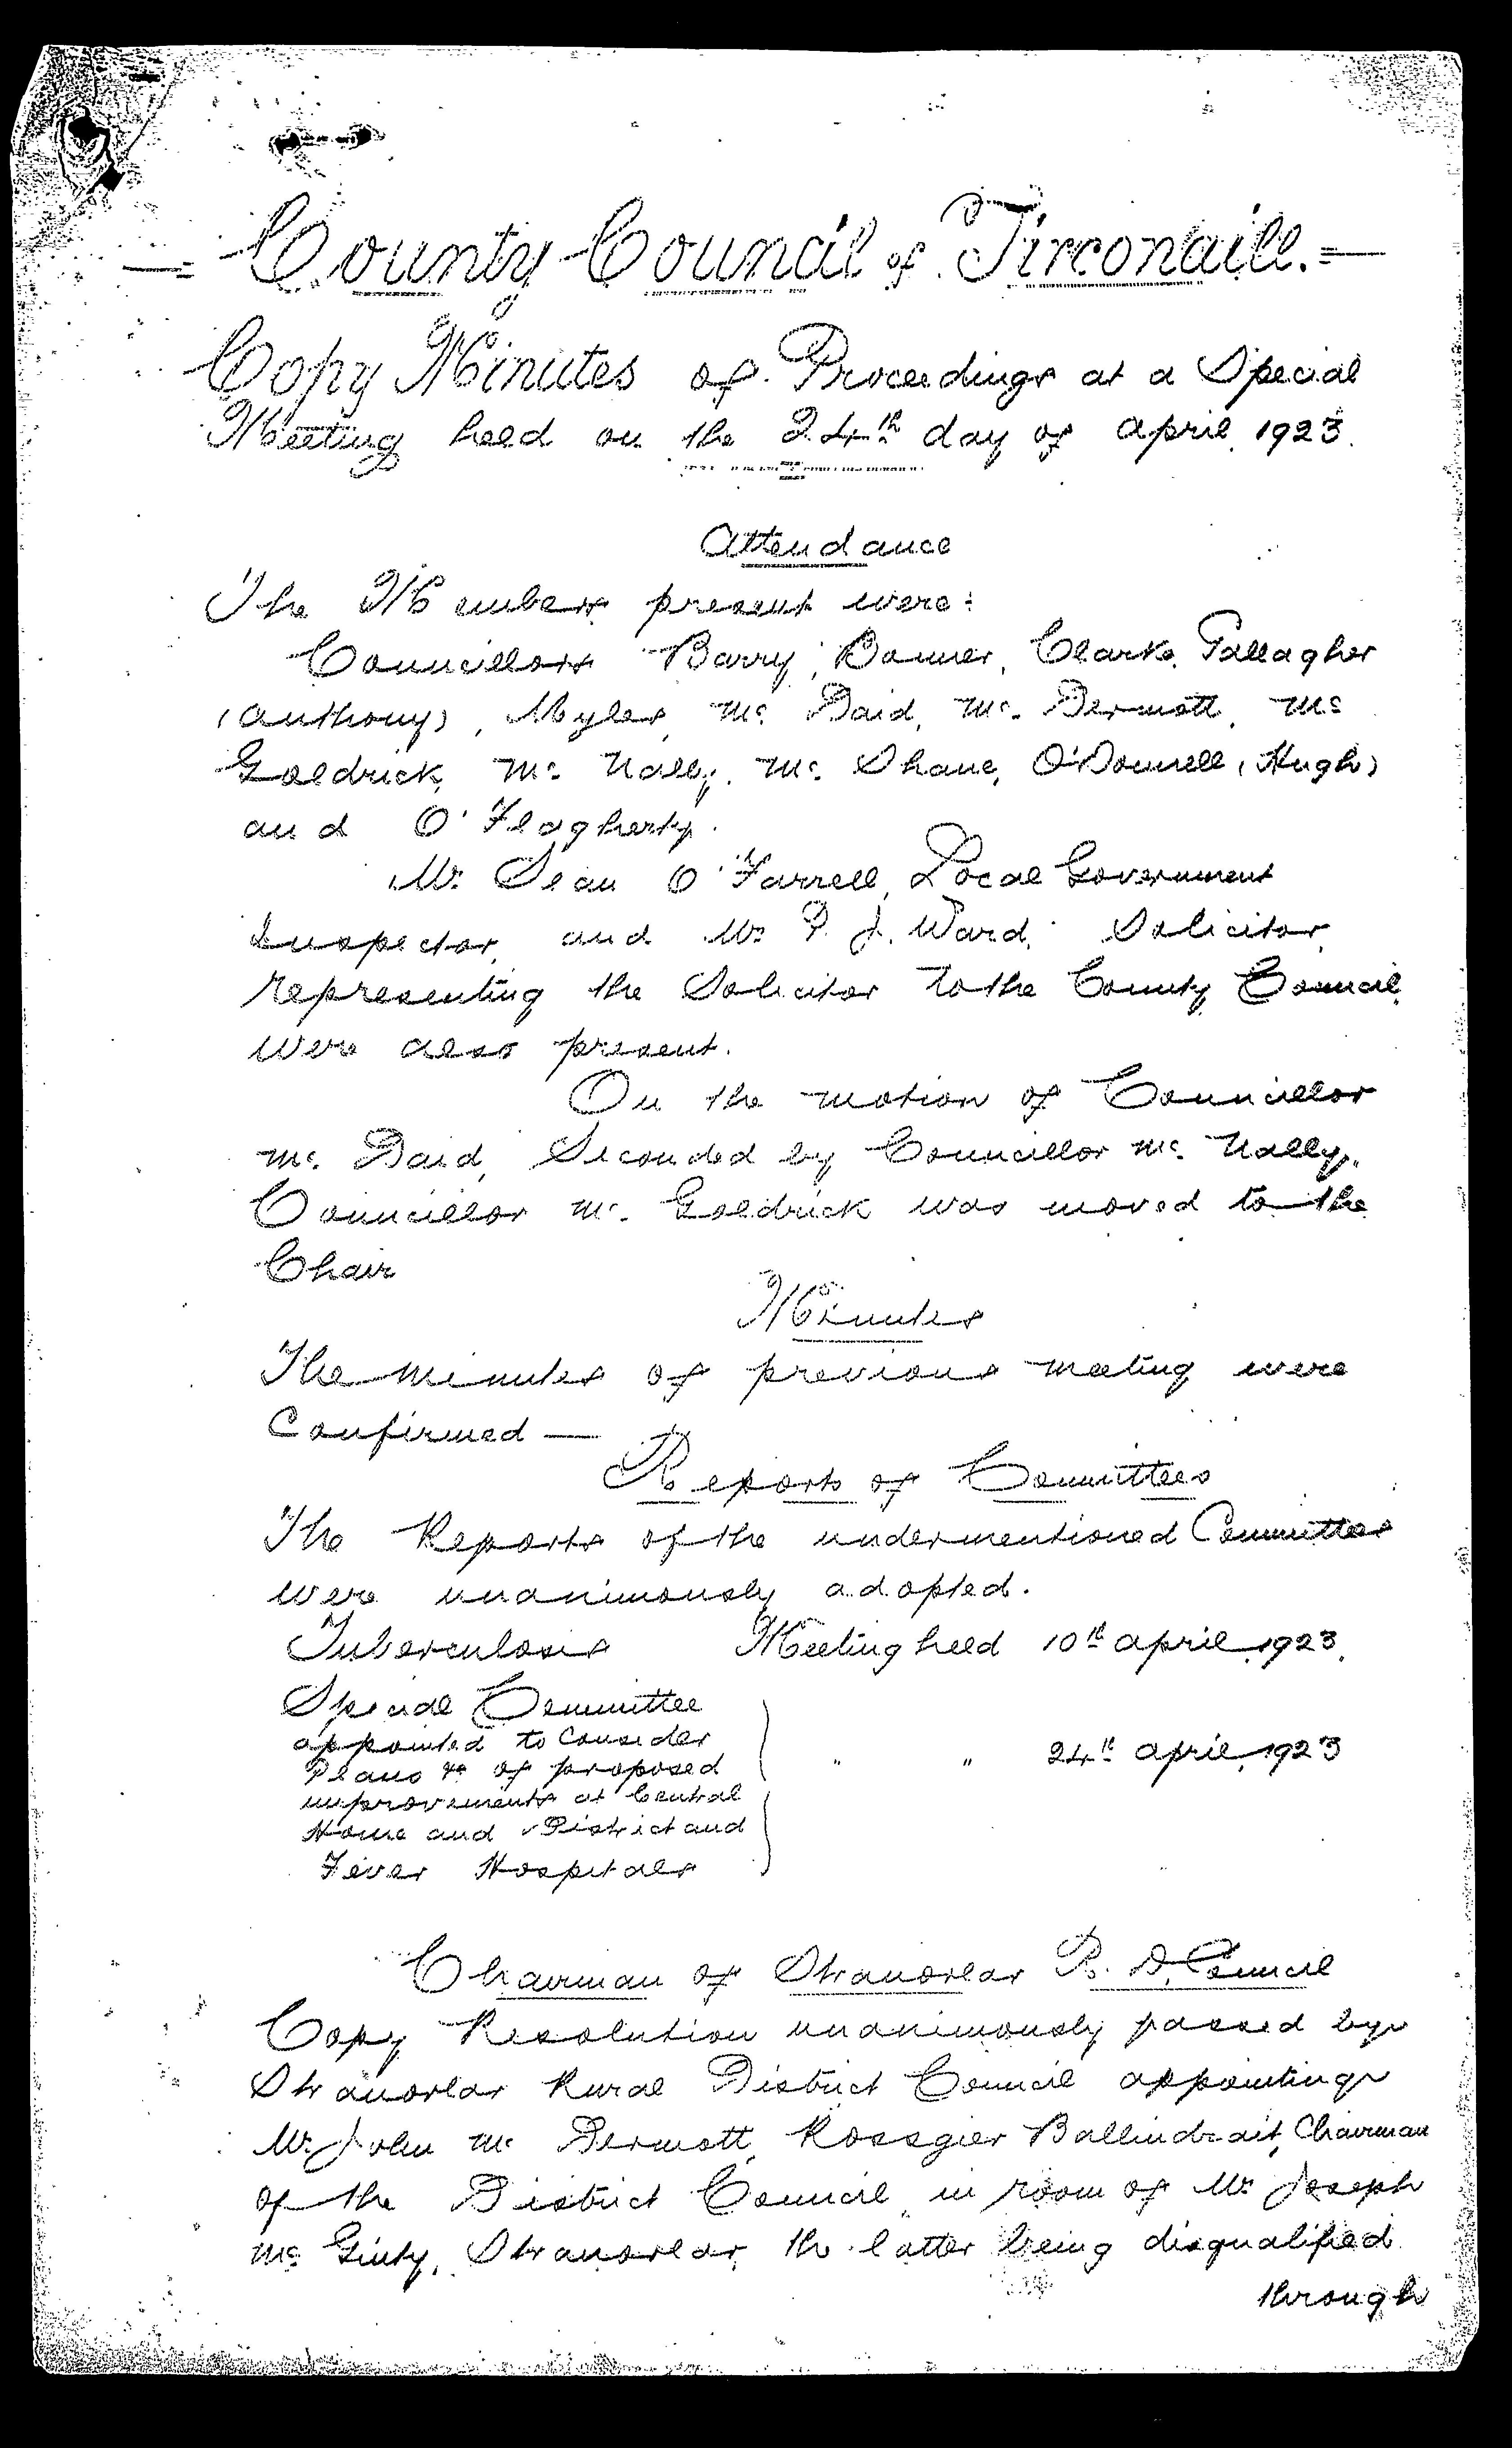 County Council of Tirconaill.
Copy Minutes of Proceedings at a Special
Meeting held on the 24th day of april, 1923.
Attendance
The Members present were:
Councillors Barry, Bonner, Clarke, Gallagher
(Anthony), Myles, Mc Daid, Mc Dermott, Mc
Goldrick, Mc Nally, Mc Shane, O'Donnell (Hugh)
and O'Flagherty.
Mr Sean O'Farrell, Local Government
Inspector, and Mr P. J. Ward, Solicitor,
representing the Solicitor to the County Council
were also present.
On the motion of Councillor
Mc Daid, Seconded by Councillor Mc Nally,
Councillor Mc Goldrick was moved to the
Chair
Minutes
The Minutes of previous meeting were
Confirmed —
Reports of Committees
The Reports of the undermentioned Committees
were unanimously adopted.
Tuberculosis Meeting held 10th april, 1923.
Special Committee
appointed to consider
Plans &c of proposed " " 24th april, 1923
improvements at Central
Home and District and
Fever Hospitals
Chairman of Stranorlar R. D. Council
Copy Resolution unanimously passed by
Stranorlar Rural District Council appointing
Mr John Mc Dermott, Rossgier Ballindrait, Chairman
of the District Council, in room of Mr Joseph
Mc Ginty, Stranorlar, the latter being disqualified
through